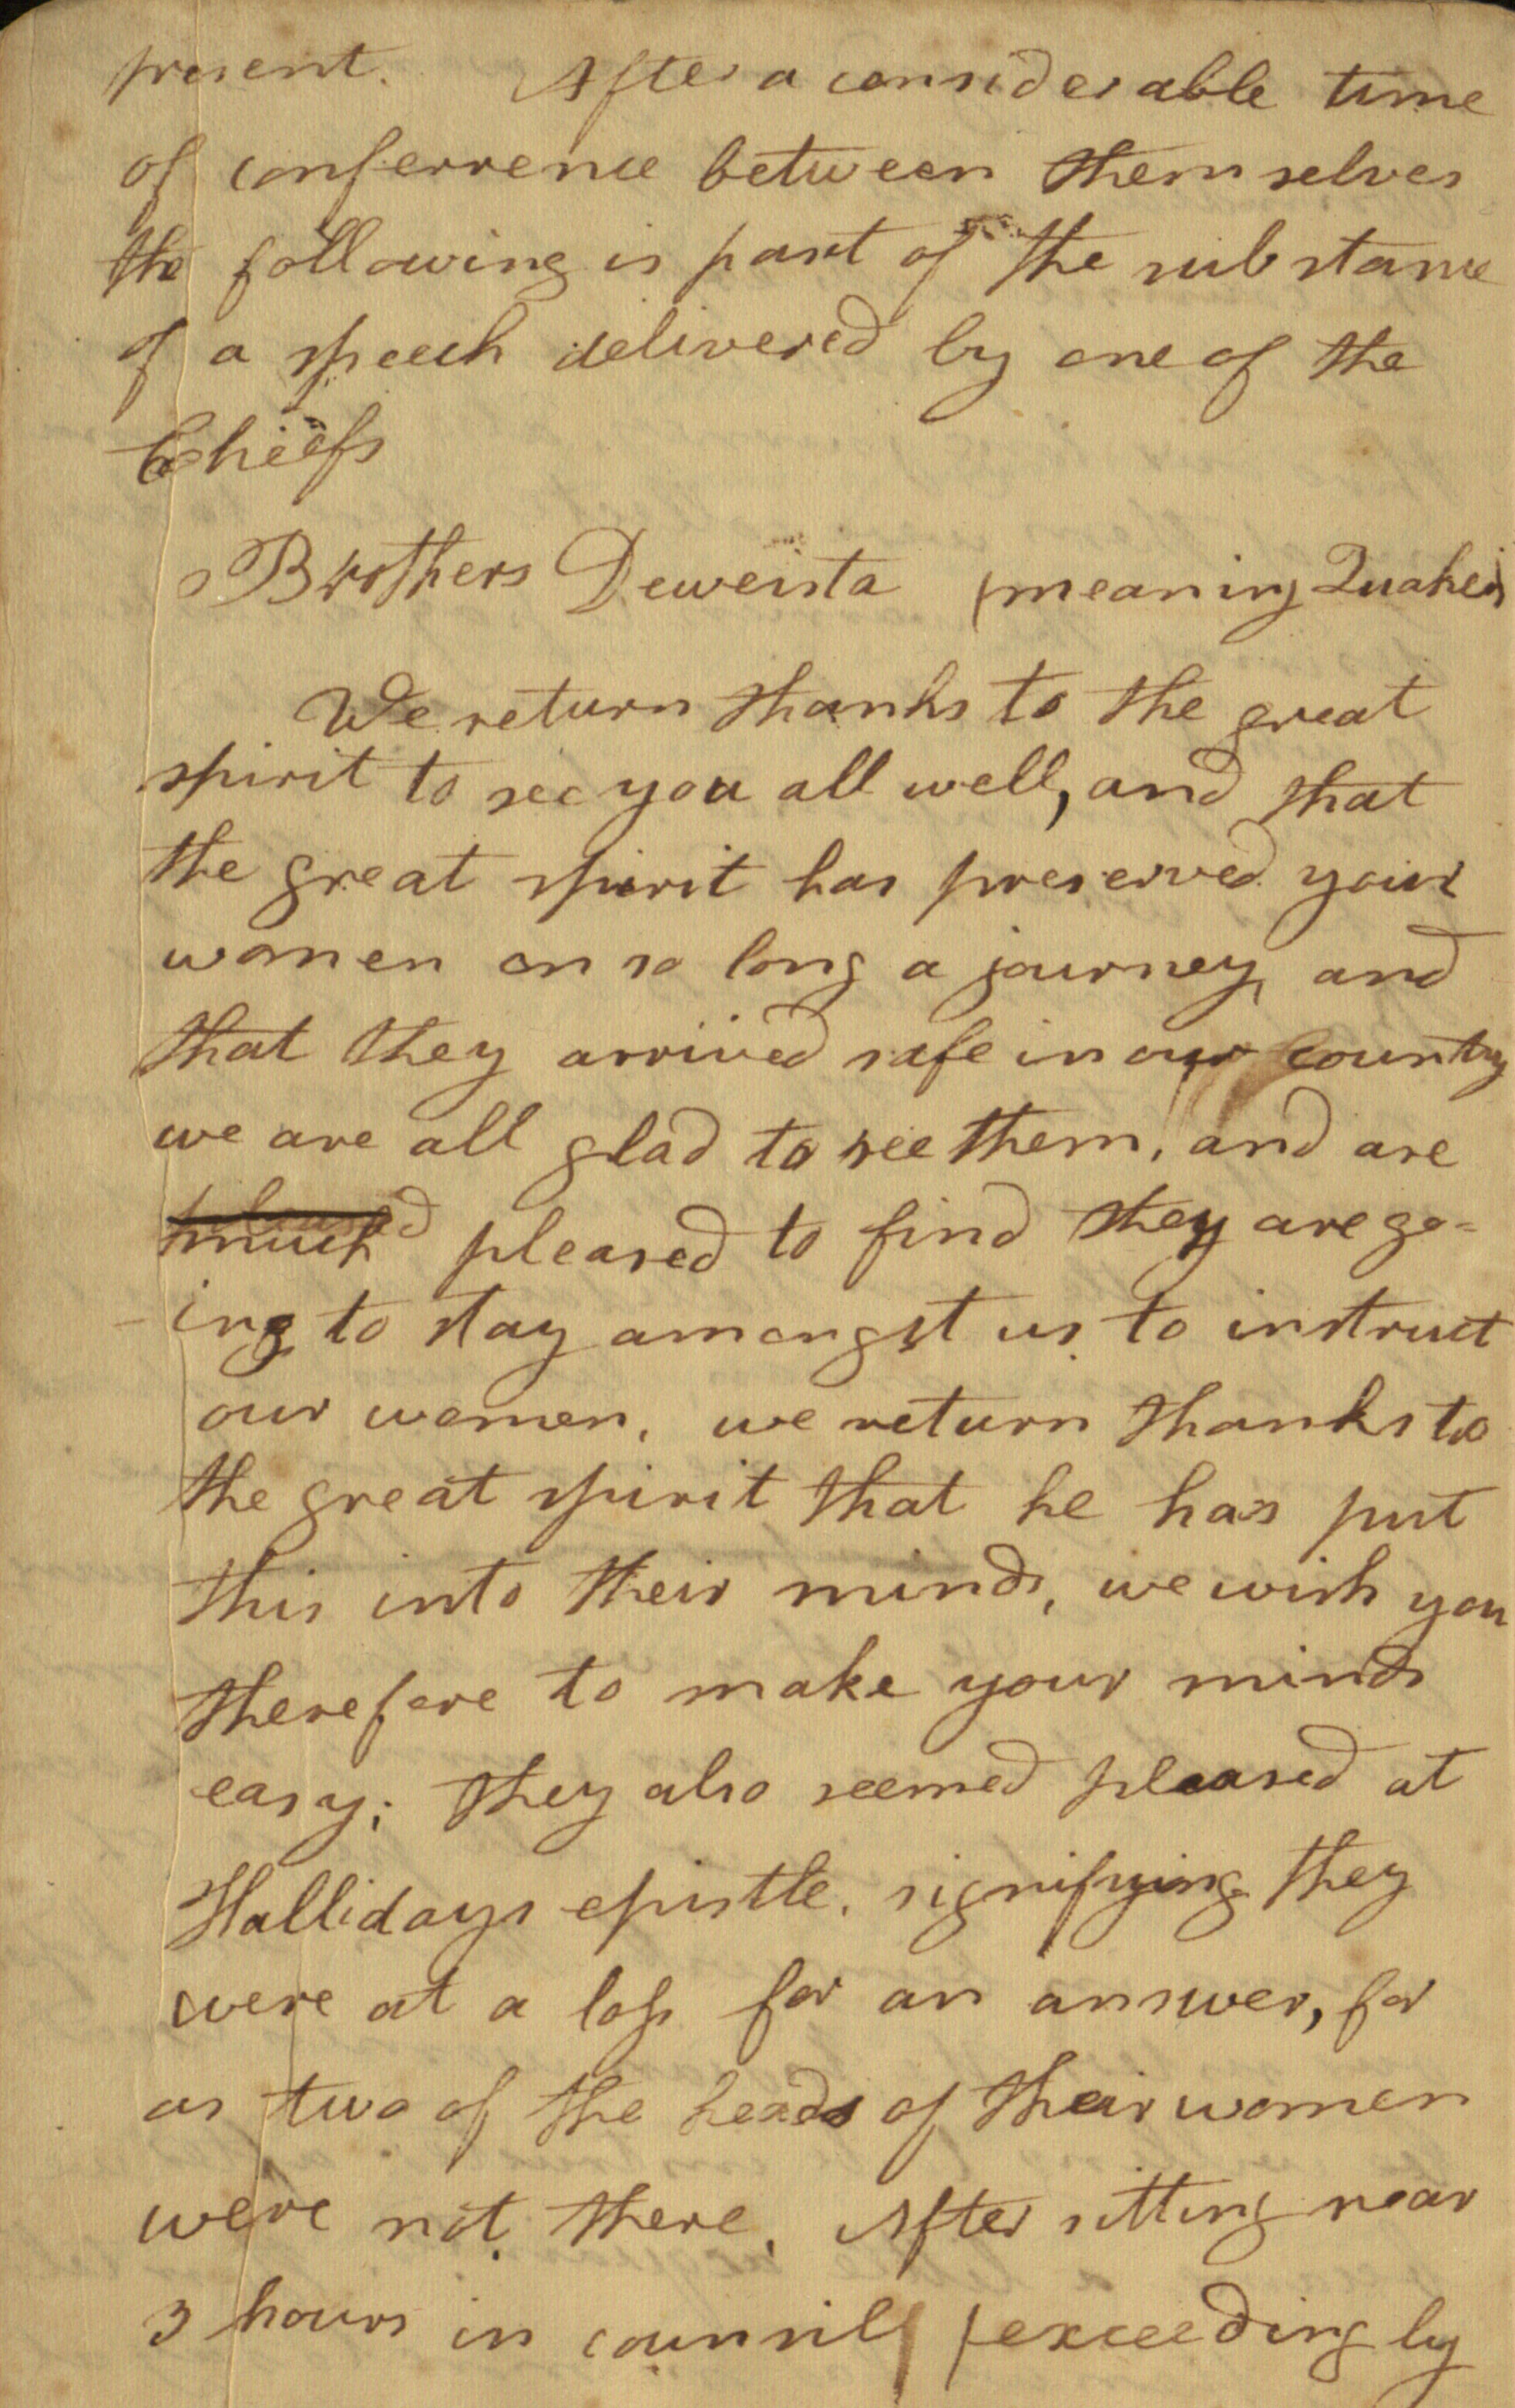 present. After a considerable time
of conferrence between themselves
the following is part of the substance
of a speech delivered by one of the
Chiefs
Brothers Deweista (meaning Quakers
We return thanks to the great
spirit to see you all well, and that
the great spirit has preserved your
women on so long a journey, and
that they arrived safe in our Country
we are all glad to see them, and are
pleased to find they are go=
-ing to stay amongst us to instruct
our women, we return thanks to
the great spirit that he has put
this into their minds, we wish you
therefore to make your minds
easy; they also seemed pleased at
Hallidays epistle, signifying they
were at a loss for an answer, for
as two of the heads of their women
were not there. After sitting near
3 hours in council (exceedingly